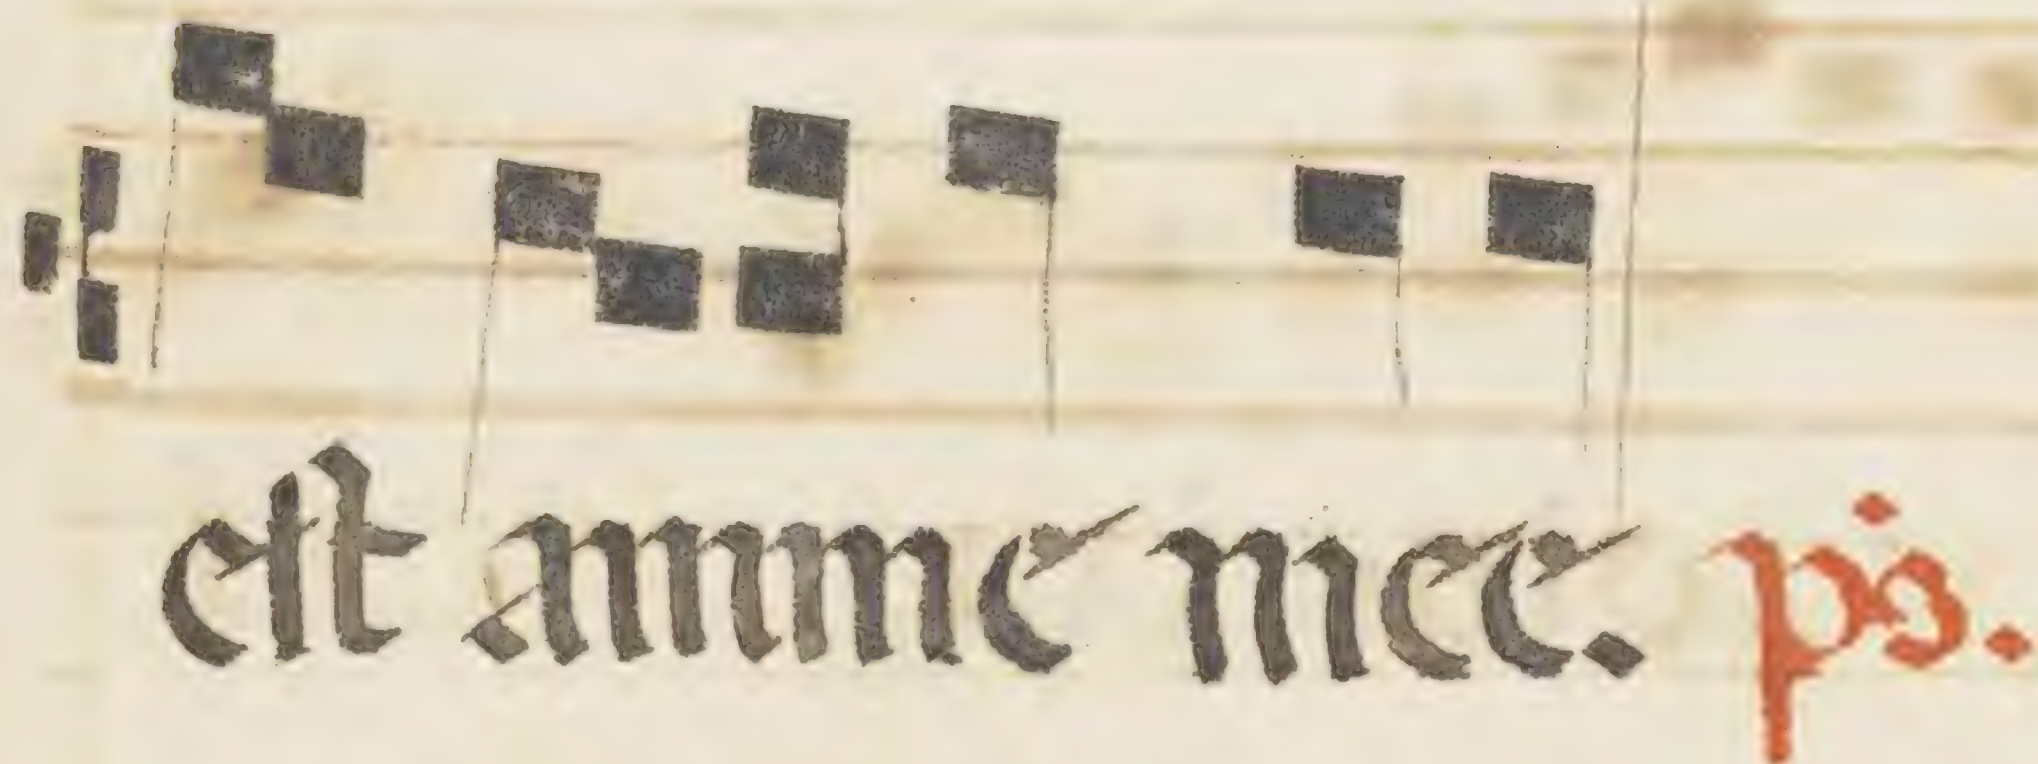 est anime mee. ps.